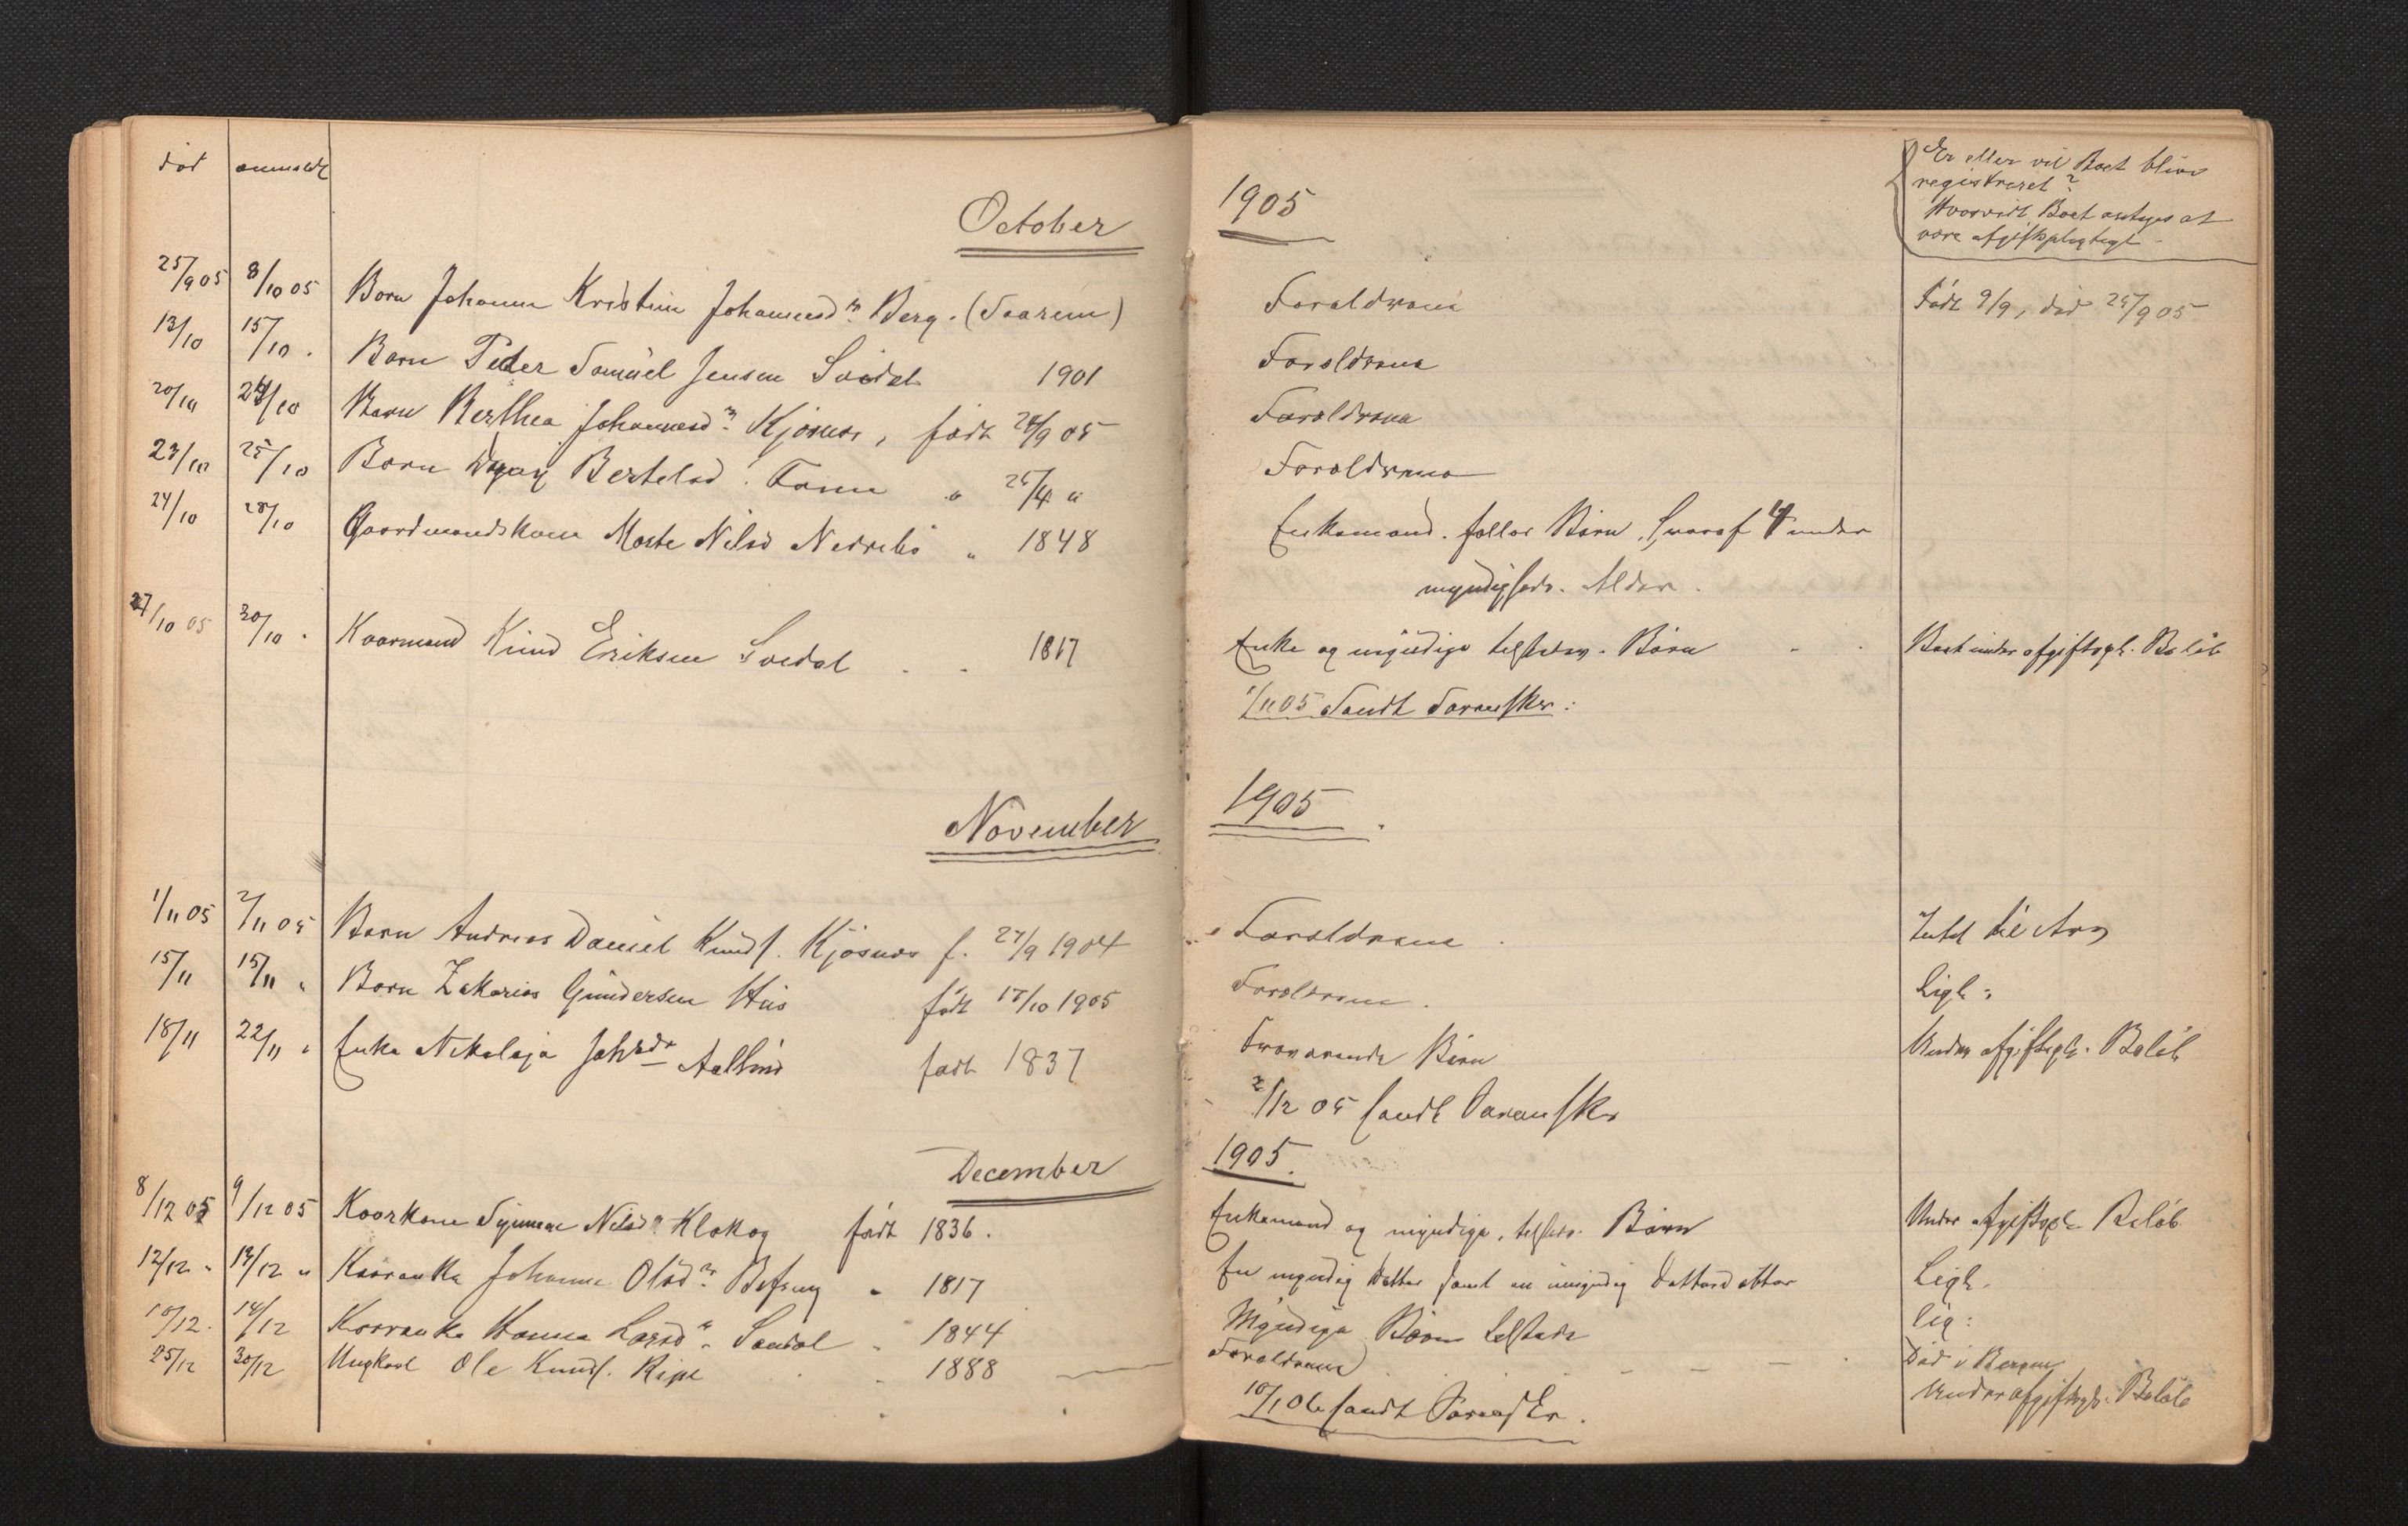 død anmeldt
October
25/9 05 8/10 05 Barn Johanne Kristine Johannesd.r Berg. (Saarem)
13/10 15/10 . Barn Peder Samuel Jensen Svidal 1901
20/10 24/10 Barn Berthea Johannesd.r Kjøsnes, født 28/9 05
23/10 25/10 Barn Bertelsd. " 25/4 "
24/10 28/10 Gaardmandskone Marte Nilsd Nedrebø " 1848
27/10 05 30/10 . Kaarmand Knud Eriksen Svidal . . 1817
November
1/11 05 2/11 05 Barn Andreas Daniel Knuds. Kjøsnes f. 27/9 1904
15/11 15/11 " Barn Zakarias Gundersen Hus født 17/10 1905
18/11 22/11 " Enke Nikolaja Johsdr født 1837
December
8/12 05 9/12 05 Kaarkone Synneve Nilsd.r Klakeg født 1836.
12/12 " 14/12 " Kaarenke Johanne Olsd.r Befring " 1817
10/12 . 14/12 Kaarenke Hanna Larsd.r Sandal " 1844
25/12 30/12 Ungkarl Ole Knuds. Ripe . . 1888
1905
Er eller vil Boet blive
registreret?
Hvorvidt Boet antages at
være afgiftspligtigt
Forældrene Født 9/9, død 25/9 05
Forældrene
Forældrene
Forældrene
Enkemand. fælles Børn, hvoraf 4 under
myndigheds. Alder.
Enke og myndige Børn Boet under afgiftspl. Beløb
1/11 05 Sendt Sorenskr:
1905
Forældrene . Intet til Arv
Forældrene . Ligl:
Fraværende Børn Under afgiftspl. Beløb
2/12 05 sendt Sorenskr
1905.
Enkemand og myndige, Børn Under afgiftspl. Beløb
En myndig Datter samt en umyndig Datterdatter Ligl.
Myndige Børn lig:
Forældrene Død i Bergen
Under afgiftspl. Beløb
10/1 06 sendt Sorenskr.